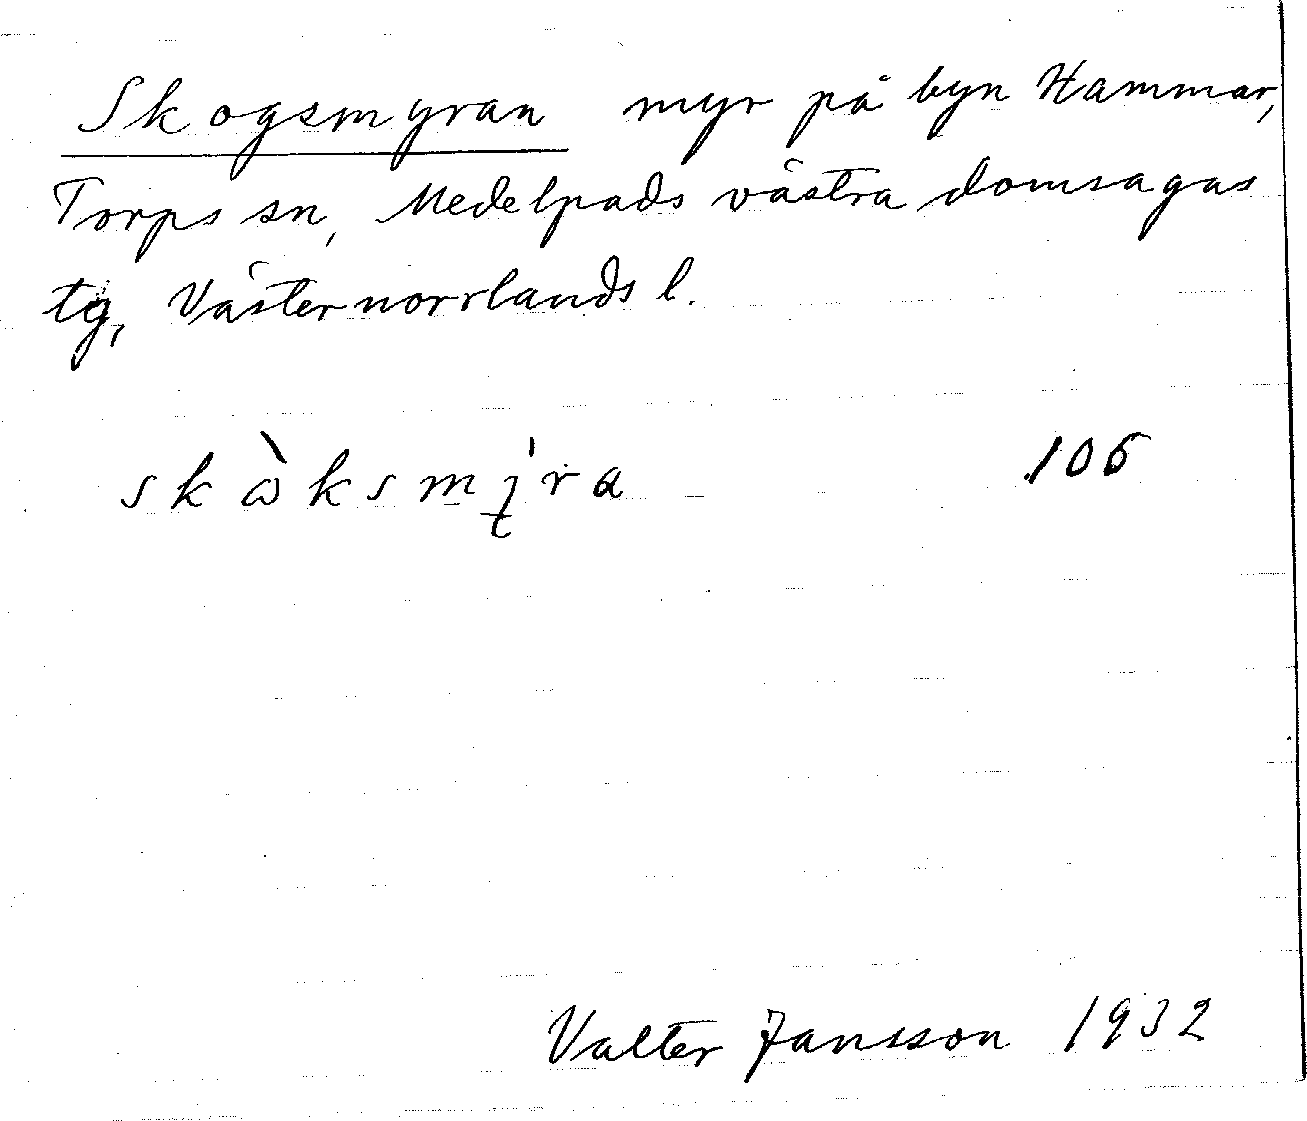 Skogsmyran myr på byn Hammar,
Torps sn, Medelpads västra domsagas
tg, Västernorrlands l.
106
Valter Jansson 1932